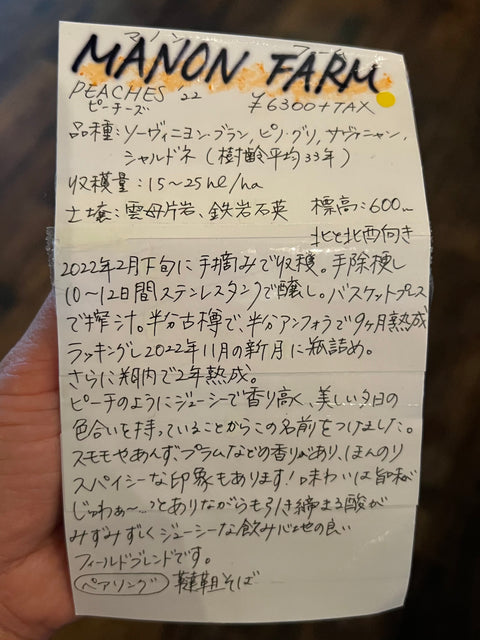 マノン ファーム
MANON FARM
PEACHES 22
ピーチーズ ¥6300+TAX
品種:ソーヴィニヨン・ブラン, ピノ・グリ, サヴァニャン,
シャルドネ (樹齢平均33年)
収穫量:15〜25hl/ha
土壌:雲母片岩、鉄岩石英 標高:600m
北と北西向き
2022年2月下旬に手摘みで収穫。手除梗し
10〜12日間ステンレスタンクで醸し。バスケットプレス
で搾汁。半分古樽で、半分アンフォラで9ヶ月熟成
ラッキングし2022年11月の新月に瓶詰め。
さらに瓶内で2年熟成。
ピーチのようにジューシーで香り高く、美しい夕日の
色合いを持っていることからこの名前をつけました。
スモモやあんず、プラムなどの香りがあり、ほんのり
スパイシーな印象もあります!味わいは旨味が
じゅわぁ〜…っとありながらも引き締まる酸が
みずみずしくジューシーな飲み心地の良い
フィールドブレンドです。
ペアリング 韃靼そば